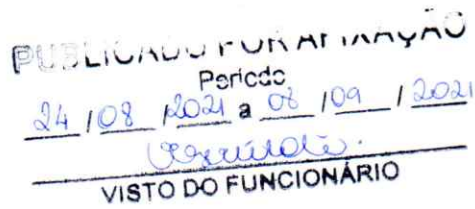 PUBLICADO POR AFIXAÇÃO
Período
24 / 08 / 2021 a 08 / 09 / 2021
VISTO DO FUNCIONÁRIO